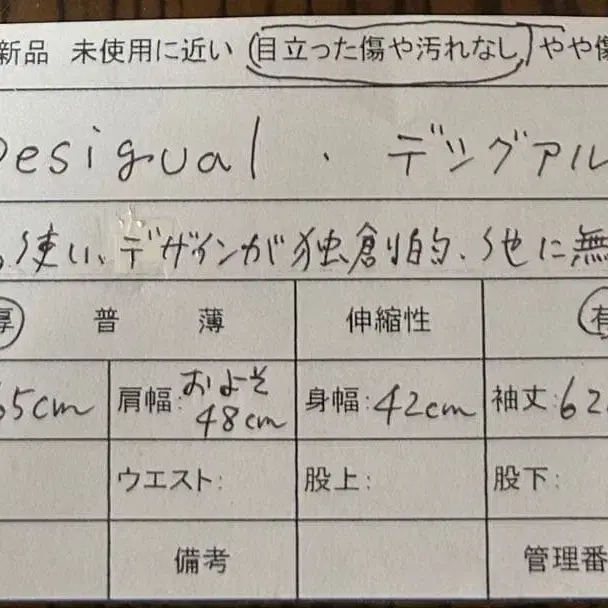 新品 未使用に近い 目立った傷や汚れなし やや傷
Desigual . デジグアル
使い、デザインが独創的、他に無
厚 普 薄 伸縮性 有
65cm 肩幅:およそ48cm 身幅:42cm 袖丈:62
ウエスト: 股上: 股下:
備考 管理番